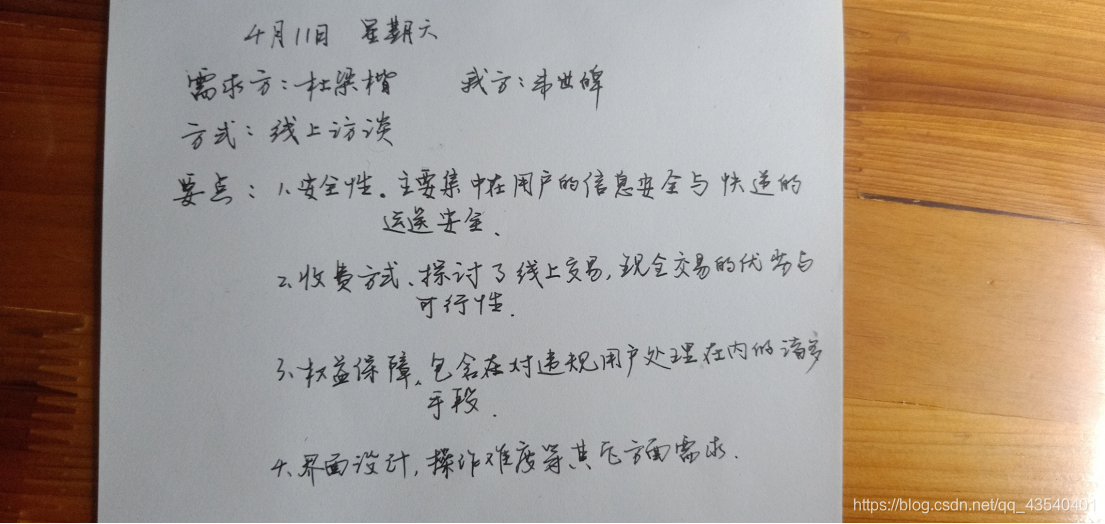 4月11日 星期六
需求方：杜梁楷 我方：韦世暐
方式：线上访谈
要点：1.安全性。主要集中在用户的信息安全与快递的
运送安全.
2.收费方式、探讨了线上交易,现金交易的优劣与
可行性.
3.权益保障、包含在对违规用户处理在内的诸多
手段.
4.界面设计,操作难度等其它方面需求.
https://blog.csdn.net/qq_43540401